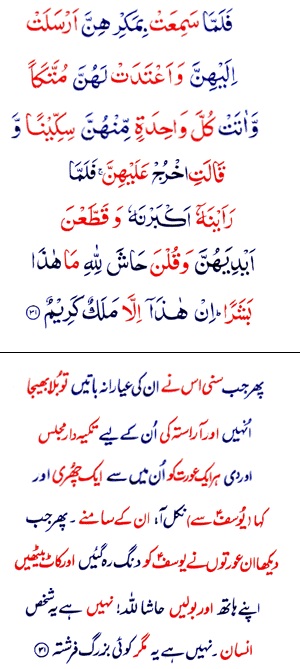 فَلَمَّا سَمِعَتْ بِمَكْرِهِنَّ اَرْسَلَتْ
اِلَيْهِنَّ وَاَعْتَدَتْ لَهُنَّ مُتَّكَاً
وَّاٰتَتْ كُلَّ وَاحِدَةٍ مِّنْهُنَّ سِكِّيْنًا وَّ
قَالَتِ اخْرُجْ عَلَيْهِنَّ ۚ فَلَمَّا
رَاَيْنَهٗۤ اَكْبَرْنَهٗ وَقَطَّعْنَ
اَيْدِيَهُنَّ وَقُلْنَ حَاشَ لِلّٰهِ مَا هٰذَا
بَشَرًا ؕ اِنْ هٰذَاۤ اِلَّا مَلَكٌ كَرِيْمٌ ۝۳۱
پھر جب سنی اس نے ان کی عیارانہ باتیں تو بلا بھیجا
اُنہیں اور آراستہ کی اُن کے لیے تکیہ دار مجلس
اور دی ہر ایک عورت کو اُن میں سے ایک چھُری اور
کہا (یُوسفؑ سے) نکل آ، ان کے سامنے ۔ پھر جب
دیکھا ان عورتوں نے یوسفؑ کو دنگ رہ گئیں اور کاٹ بیٹھیں
اپنے ہاتھ اور بولیں حاشا للہ! نہیں ہے یہ شخص
انسان ۔ نہیں ہے یہ مگر کوئی بزرگ فرشتہ ۝۳۱